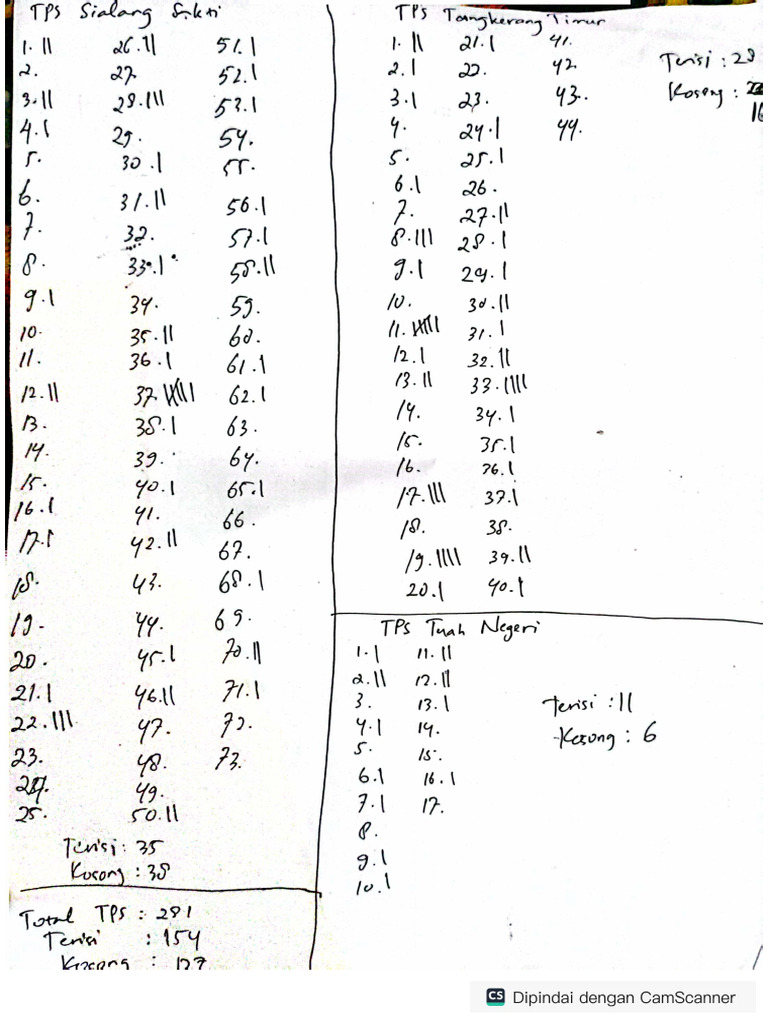 TPS Sialang Sakti
1. ||
2.
3. ||
4. |
5.
6.
7.
8.
9. |
10.
11.
12. ||
13.
14.
15.
16. |
17. |
18.
19.
20.
21. |
22. |||
23.
24.
25.
26. ||
27.
28. |||
29.
30. |
31. ||
32.
33. |
34.
35. ||
36. |
37. ||||
38. |
39.
40. |
41.
42. ||
43.
44.
45. |
46. ||
47.
48.
49.
50. ||
51. |
52. |
53. |
54.
55.
56. |
57. |
58. ||
59.
60.
61. |
62. |
63.
64.
65. |
66.
67.
68. |
69.
70. ||
71. |
72.
73.
Terisi : 35
Kosong : 38
Total TPS : 281
Terisi : 154
Kosong : 127
TPS Tangkerang Timur
1. ||
2. |
3. |
4.
5.
6. |
7.
8. |||
9. |
10.
11. ||||
12. |
13. ||
14.
15.
16.
17. |||
18.
19. ||||
20. |
21. |
22.
23.
24. |
25. |
26.
27. ||
28. |
29. |
30. ||
31. |
32. ||
33. ||||
34. |
35. |
36. |
37. |
38.
39. ||
40. |
41.
42.
43.
44.
Terisi : 28
Kosong : 16
TPS Tuah Negeri
1. |
2. ||
3.
4. |
5.
6. |
7. |
8.
9. |
10. |
11. ||
12. ||
13. |
14.
15.
16. |
17.
Terisi : 11
Kosong : 6
CS Dipindai dengan CamScanner